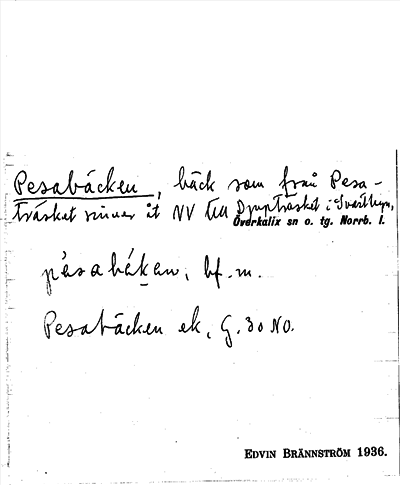 Pesabäcken, bäck som från Pesa-
träsket rinner åt NV till Djupträsket i Svartbyn,
Överkalix sn o. tg. Norrb. l.
bf. m.
Pesabäcken ek, G. 30 NO.
EDVIN BRÄNNSTRÖM 1936.